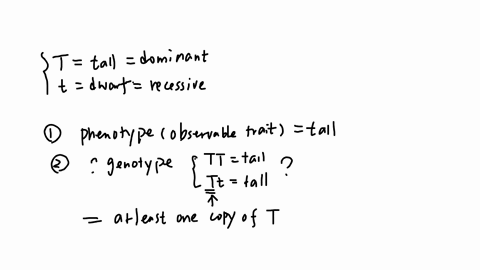 T = tall = dominant
t = dwarf = recessive
① phenotype (observable trait) = tall
② ? genotype { TT = tall
Tt = tall ?
= at least one copy of T